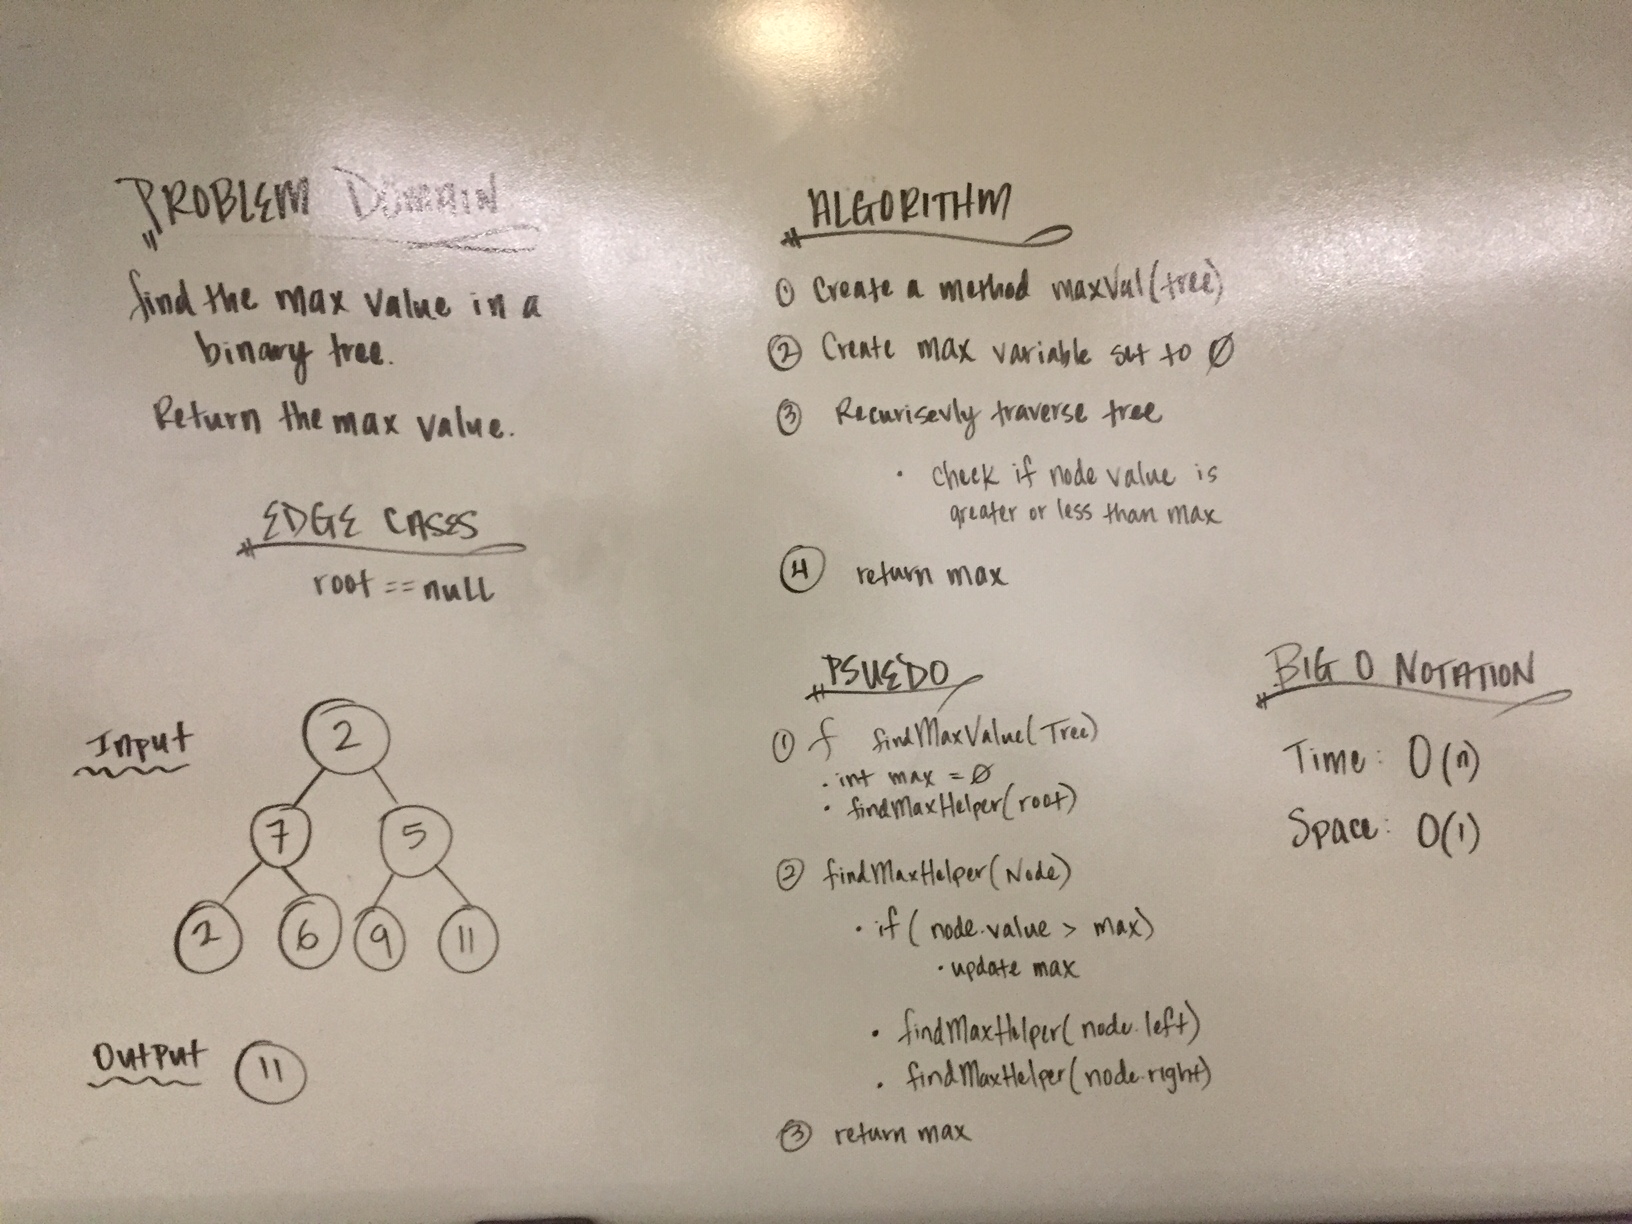 PROBLEM DOMAIN
find the max value in a
binary tree.
Return the max value.
EDGE CASES
root == null
Input
2
7 5
2 6 9 11
Output 11
ALGORITHM
① Create a method maxVal(tree)
② Create max variable set to Ø
③ Recurisevly traverse tree
· check if node value is
greater or less than max
④ return max
PSUEDO
① f findMaxValue(Tree)
· int max = Ø
· findMaxHelper(root)
② findMaxHelper(Node)
· if ( node.value > max)
· update max
· findMaxHelper( node.left)
· findMaxHelper(node.right)
③ return max
BIG O NOTATION
Time: O(n)
Space: O(1)